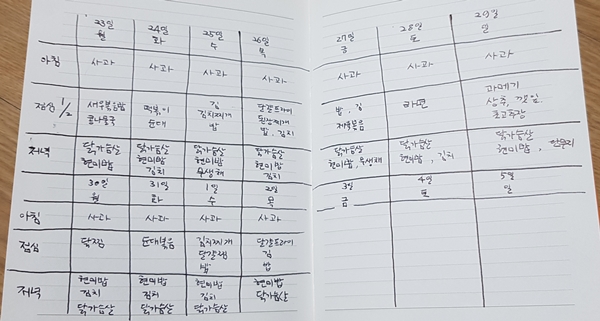 23일 24일 25일 26일 27일 28일 29일
월 화 수 목 금 토 일
아침 사과 사과 사과 사과 사과 사과 사과
점심 1/2 새우볶음밥 떡볶이 김 달걀프라이 밥, 김 라면 과메기
콩나물국 순대 김치찌개 된장찌개 제육볶음 상추, 깻잎
밥 밥, 김치 초고추장
저녁 닭가슴살 닭가슴살 닭가슴살 닭가슴살 닭가슴살 닭가슴살 닭가슴살
현미밥 현미밥 현미밥 현미밥 현미밥, 무생채 현미밥, 김치 현미밥, 단무지
김치 무생채 김치
30일 31일 1일 2일 3일 4일 5일
월 화 수 목 금 토 일
아침 사과 사과 사과 사과
점심 닭찜 순대볶음 김치찌개 달걀프라이
달걀찜 김
밥 밥
저녁 현미밥 현미밥 현미밥 현미밥
김치 김치 김치 닭가슴살
닭가슴살 닭가슴살 닭가슴살